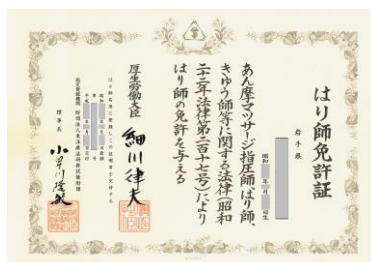 はり師免許証
岩手県
昭和 年 月 日生
あん摩マツサージ指圧師、はり師、
きゆう師等に関する法律（昭和
二十二年法律第二百十七号）により
はり師の免許を与える
厚生労働大臣 細川律夫
理事長 小早川隆敏